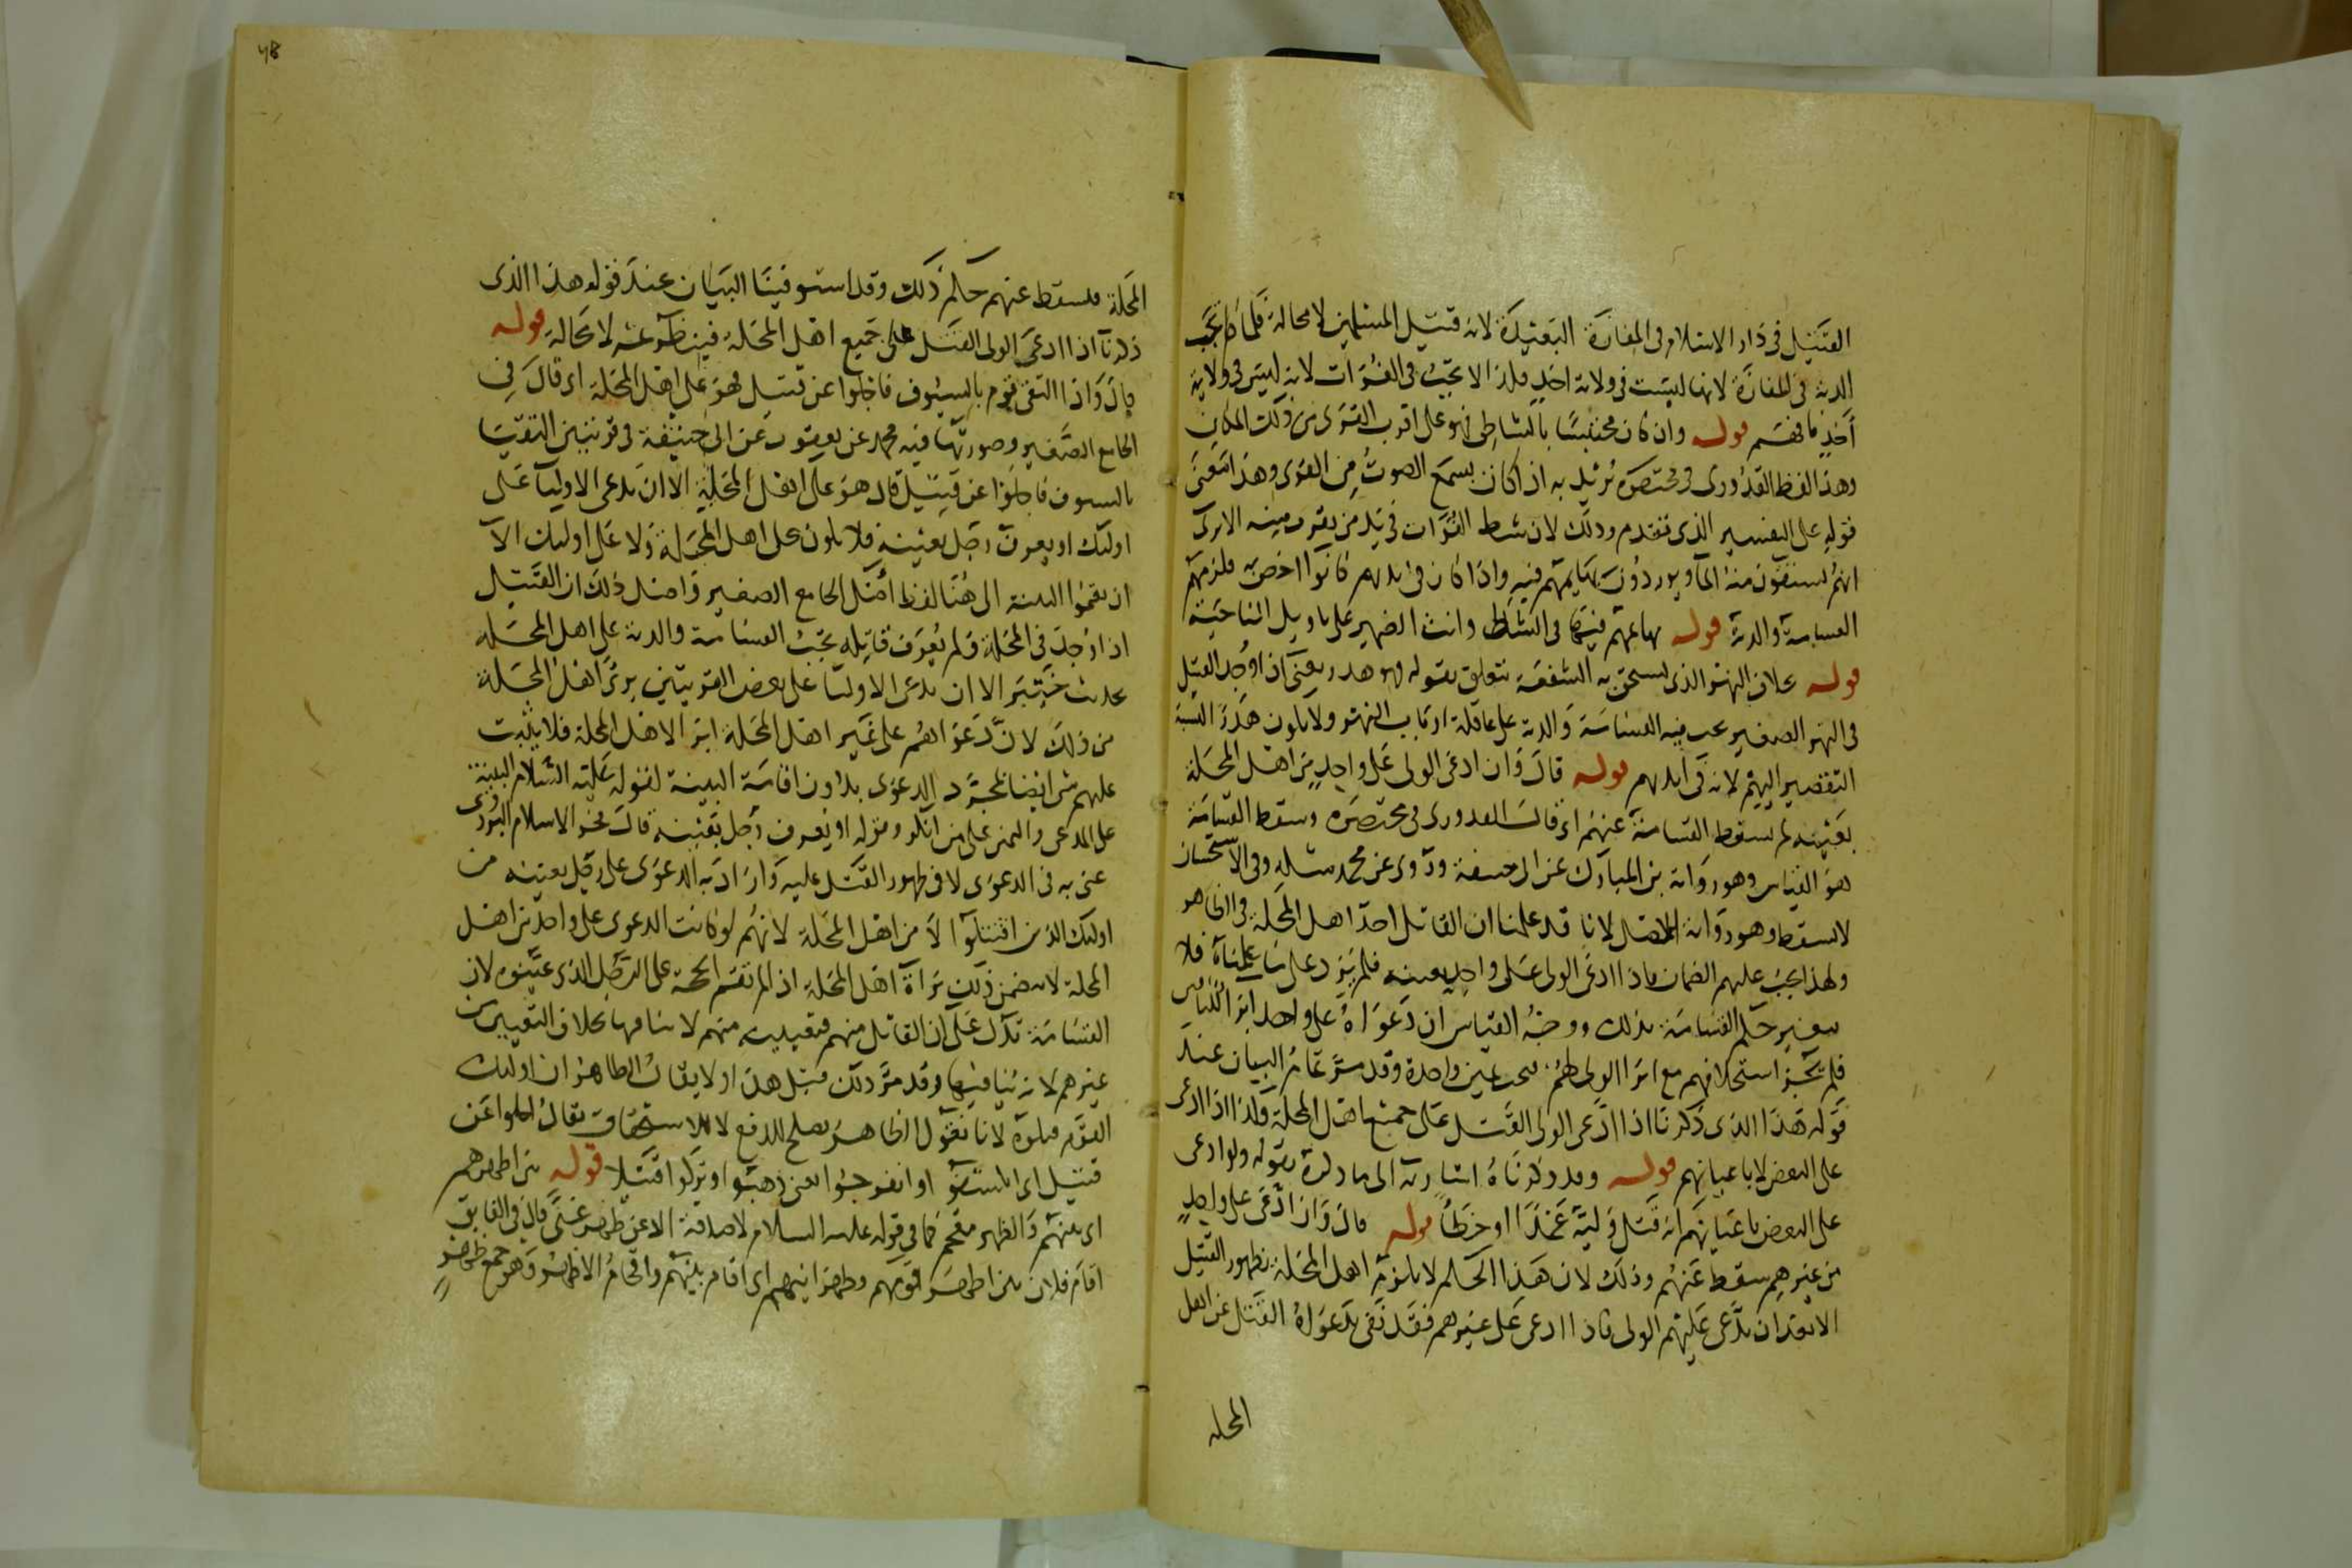 القتيل في دار الاسلام في المفازة البعيدة لانه قتيل المسلمين لا محالة فلما لم تجب
الدية في المفازة لانها ليست في ولاية احد فلذا لا تجب في الفرات لانه ليس في ولاية
أحد فافهم قوله وان كان محتبسا بالشاطئ فهو على اقرب القرى من ذلك المكان
وهذا لفظ القدوري في مختصره يريد به اذا كان يسمع الصوت من القرى وهذا معنى
قوله على التفسير الذي تقدم وذلك لان شط الفرات في يد من يقرب منه الا يرى
انهم يستقون منه الماء ويوردون بهايمهم فيه واذا كان في ايديهم كانوا اخص به فلزمهم
القسامة والدية قوله بهايمهم فيها في الشاطئ وانث الضمير على تاويل الناحية
قوله بخلاف النهر الذي يستحق به الشفعة يتعلق بقوله فهو هدر يعني اذا وجد القتيل
في النهر الصغير يجب فيه القسامة والدية على عاقلة ارباب النهر ولا يكون هدرا لنسبة
التقصير اليهم لانه في ايديهم قوله قال وان ادعى الولي على واحد من اهل المحلة
بعينه لم يسقط القسامة عنهم اي قال القدوري في مختصره وسقط القسامة
هو القياس وهو رواية بن المبارك عن ابي حنيفة وروى عن محمد مثله وفي الاستحسان
لا يسقط وهو رواية الاصل لانا قد علمنا ان القاتل احد اهل المحلة في الظاهر
ولهذا يجب عليهم الضمان فاذا ادعى الولي على واحد بعينه فلم يزد على ما علمناه فلا
يتغير حكم القسامة بذلك ووجه القياس ان دعواه على واحد ابرا الباقين
فلم يجز استحلافهم مع ابرا الولي لهم وقد مر تمام البيان عند
قوله هذا الذي ذكرنا اذا ادعى الولي القتل على جميع اهل المحلة وكذا اذا ادعى
على البعض لا باعيانهم قوله وقد ذكرناه اشارة الى ما ذكره بقوله ولو ادعى
على البعض باعيانهم انه قتل وليه عمدا او خطأ قوله قال وان ادعى على واحد
من غيرهم سقط عنهم وذلك لان هذا الحكم لا يلزم اهل المحلة بظهور القتيل
الا بعد ان يدعى عليهم الولي فاذا ادعى على غيرهم فقد نفى بدعواه القتل عن اهل
المحله
المحلة فيسقط عنهم حكم ذلك وقد استوفينا البيان عند قوله هذا الذي
ذكرنا اذا ادعى الولي القتل على جميع اهل المحلة فينظر ثمه لا محالة قوله
قال واذا التقى قوم بالسيوف فاجلوا عن قتيل فهو على اهل المحلة اي قال في
الجامع الصغير وصورتها فيه محمد عن يعقوب عن ابي حنيفة في قريتين التقيتا
بالسيوف فاجلوا عن قتيل قال هو على اهل المحلة الا ان يدعى الاوليا على
اولئك او يعرف رجل بعينه فلا يكون على اهل المحلة ولا على اولئك الا
ان يقيموا البينة الى هنا لفظ اصل الجامع الصغير واصل ذلك ان القتيل
اذا وجد في المحلة ولم يعرف قاتله تجب القسامة والدية على اهل المحلة
بحديث خيبر الا ان يدعى الاوليا على بعض القريتين برئ اهل المحلة
من ذلك لان دعواهم على غير اهل المحلة ابرا لاهل المحلة فلا يثبت
عليهم شى ايضا بمجرد الدعوى بدون اقامة البينة لقوله عليه السلام البينة
على المدعى واليمين على من انكر وقوله او يعرف رجل بعينه قال فخر الاسلام البزدوى
عنى به في الدعوى لا في ظهور القتل عليه واراد به الدعوى على رجل بعينه من
اولئك الذين اقتتلوا لا من اهل المحلة لانهم لو كانت الدعوى على واحد من اهل
المحلة لا يتضمن ذلك براة اهل المحلة اذا لم تقم الحجة على الرجل الذي عينوه لان
القسامة تدل على ان القاتل منهم فتعيينه منهم لا ينافيها بخلاف التعيين من
غيرهم لانه ينافيها وقد مر ذلك قبل هذا ولا يقال الظاهر ان اولئك
القوم قتلوه لانا نقول الظاهر يصلح للدفع لا للاستحقاق يقال اجلوا عن
قتيل اي انكشفوا او انفرجوا اى ذهبوا وتركوا قتيلا قوله بين اظهرهم
اى بينهم والظهر مقحم كما في قوله عليه السلام لا صدقة الا عن ظهر غنى قال في الفايق
اقام فلان بين اظهر قومه وظهرانيهم اى اقام بينهم واقحام الاظهر وهو جمع ظهر